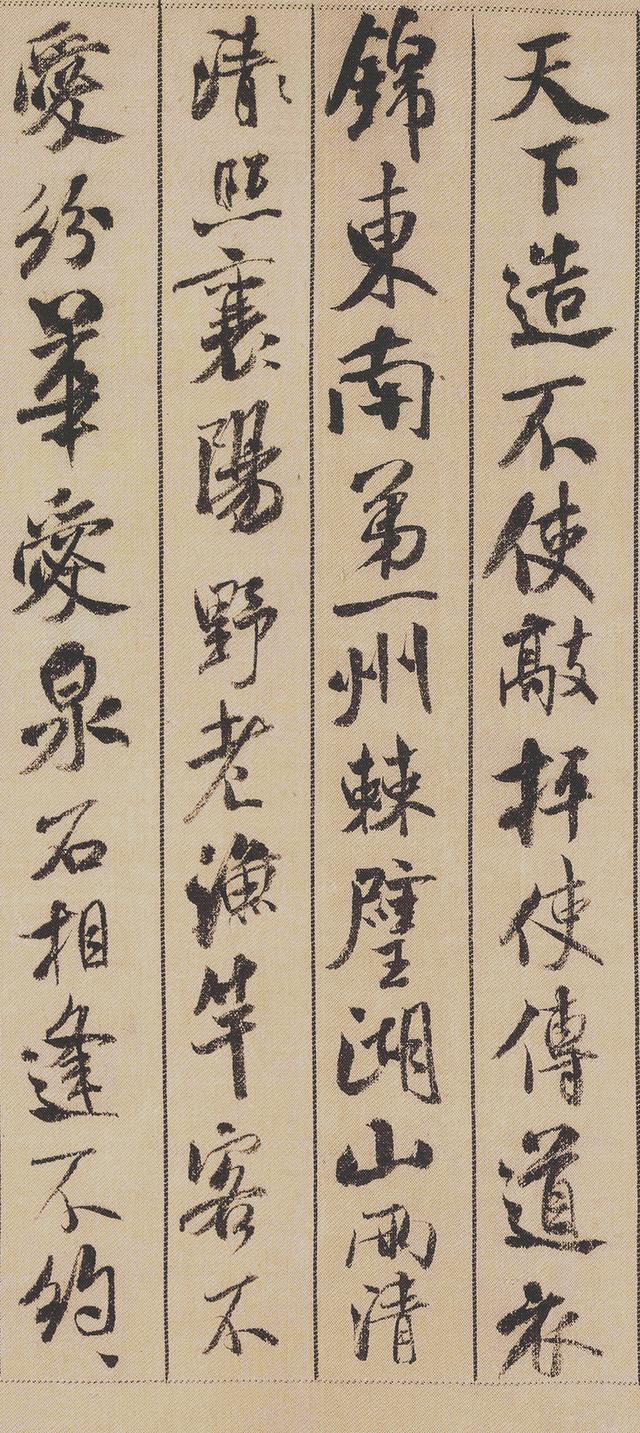 天下造不使敲抨使傳道衣
錦東南第一州棘璧湖山兩清
清照襄陽野老漁竿客不
愛紛華愛泉石相逢不約、